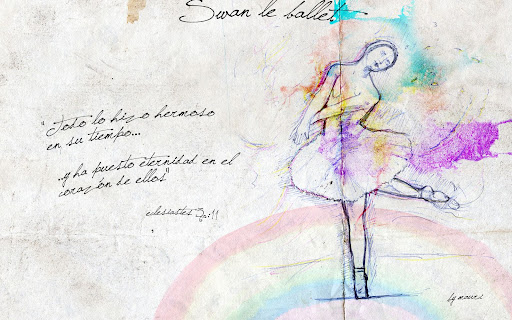 Swan le ballet
"Todo lo hizo hermoso
en su tiempo...
..y ha puesto eternidad en el
corazón de ellos"
eclesiastes 3:11
by mauri